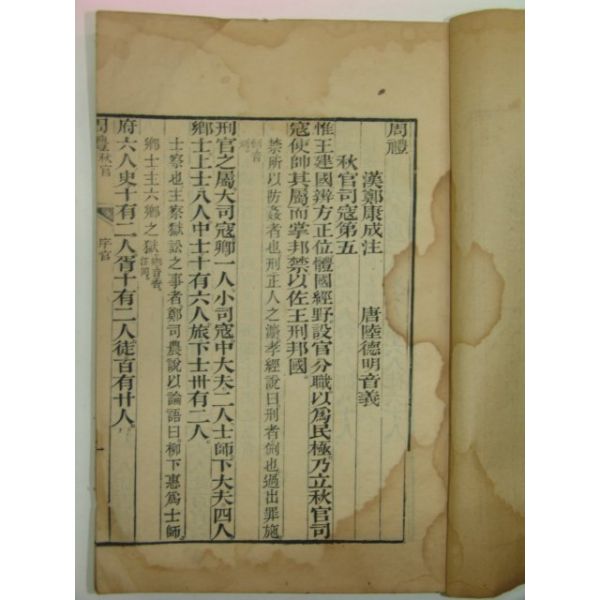 周禮
漢鄭康成注　唐陸德明音義
秋官司寇第五
惟王建國辨方正位體國經野設官分職以爲民極乃立秋官司
寇使帥其屬而掌邦禁以佐王刑邦國
禁所以防姦者也刑正人之灋孝經說曰刑者侀也過出罪施
刑官之屬大司寇卿一人小司寇中大夫二人士師下大夫四人
鄉士上士八人中士十有六人旅下士卅有二人
士察也主察獄訟之事者鄭司農說以論語曰柳下惠爲士師
鄉士主六鄉之獄
府六人史十有二人胥十有二人徒百有廿人
周禮秋官
序官
一